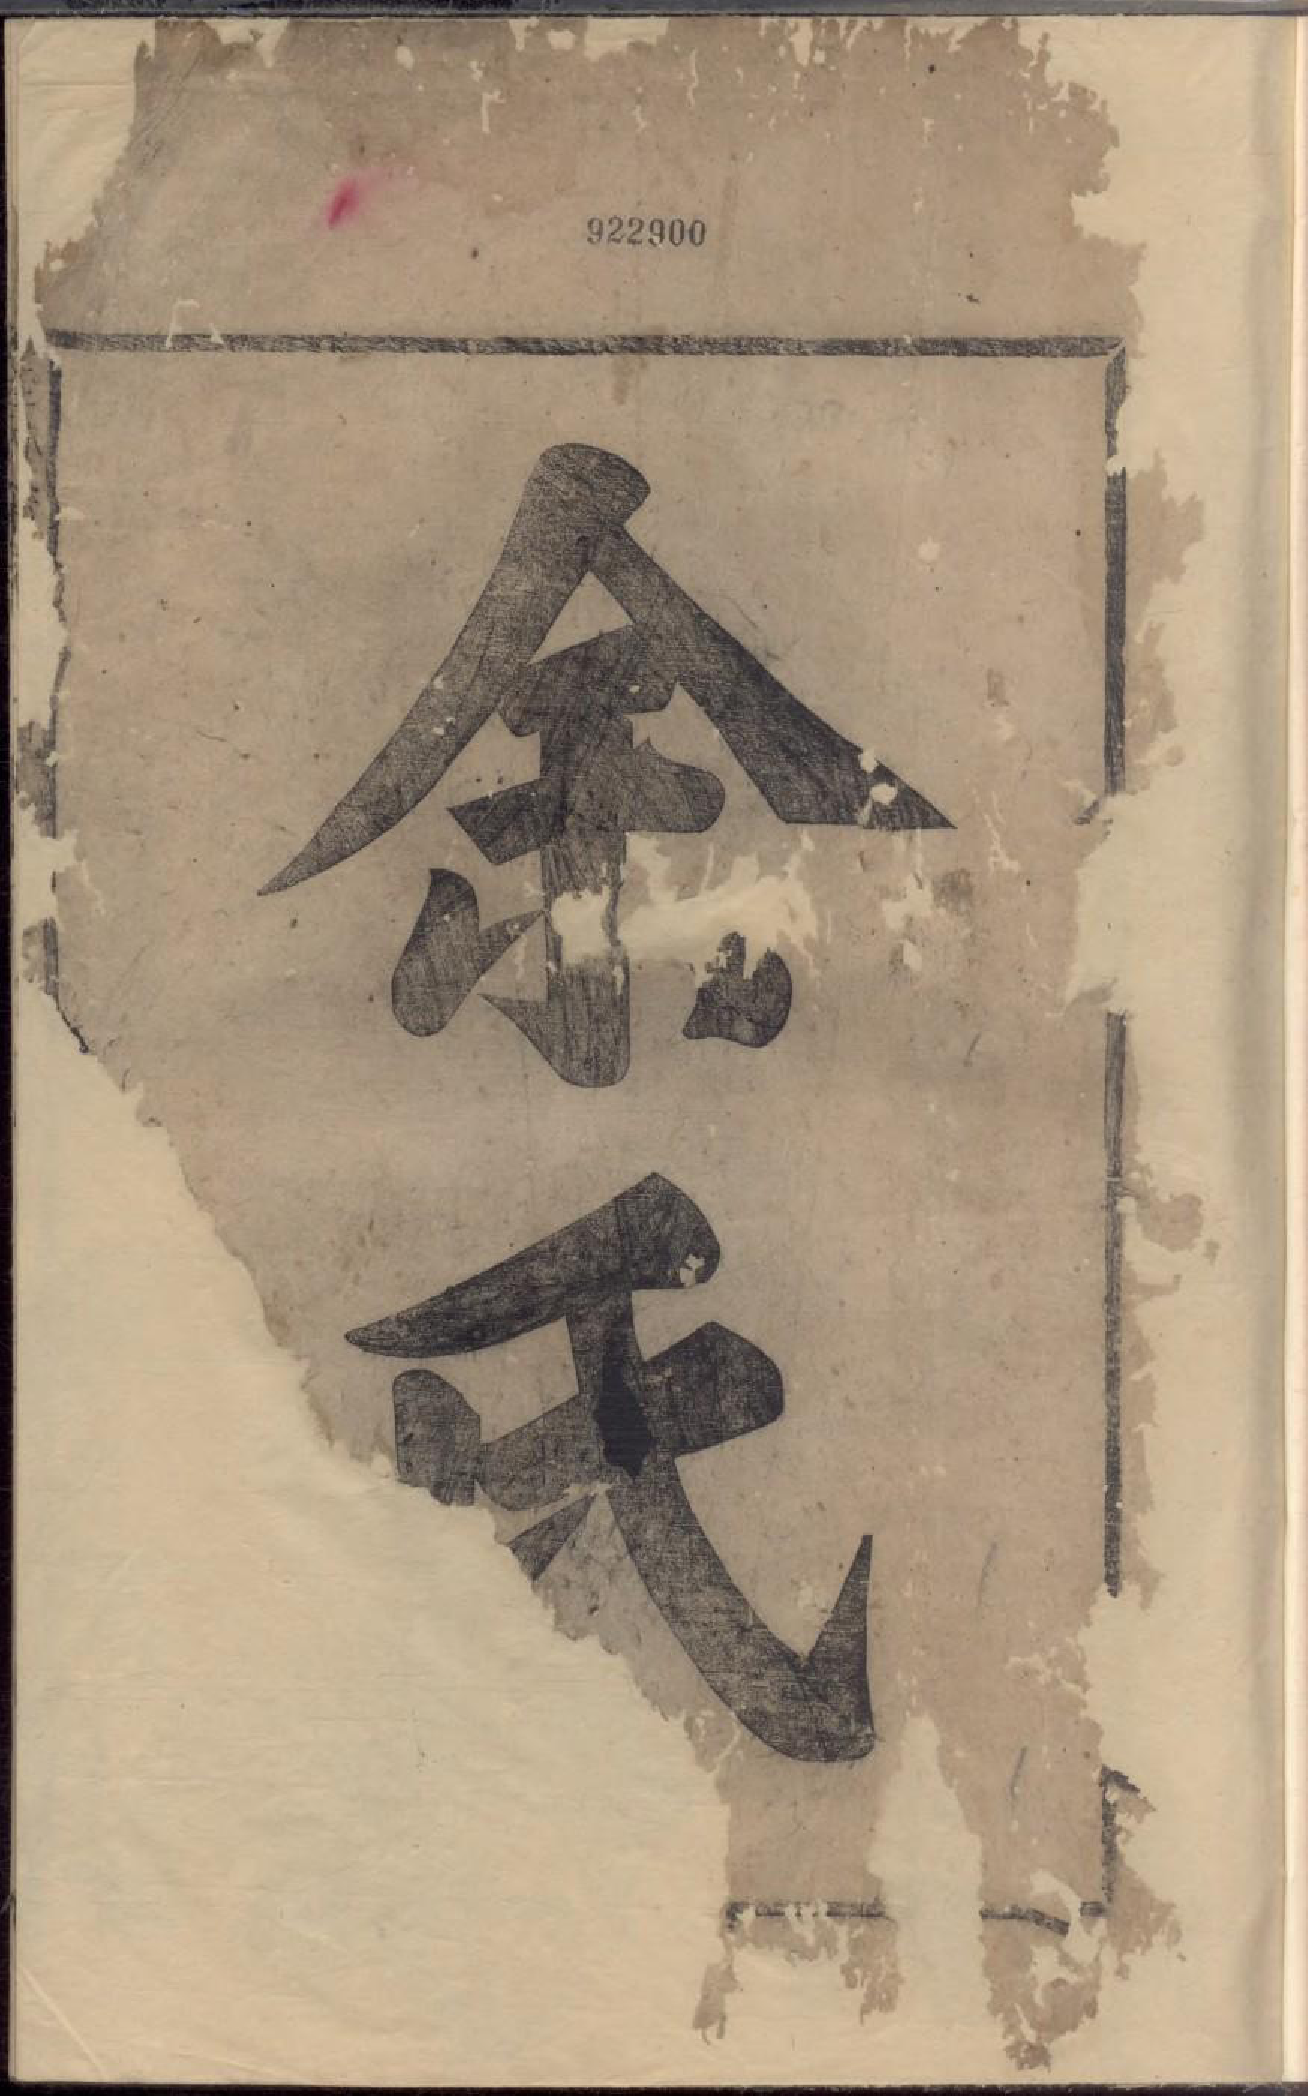 922900
余氏